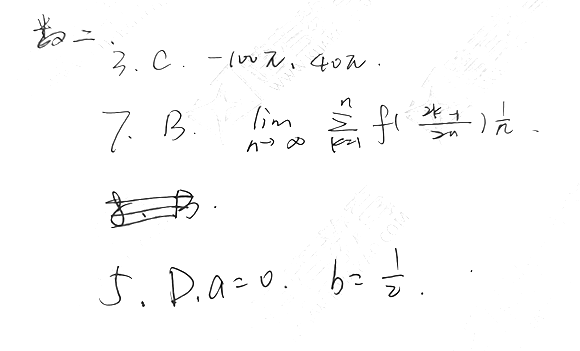 数二
3. C. -100π、40π.
7. B. lim n→∞ ∑ k=1 n f( 2k-1 / 2n ) 1/n .
5. D. a=0. b= 1/2 .